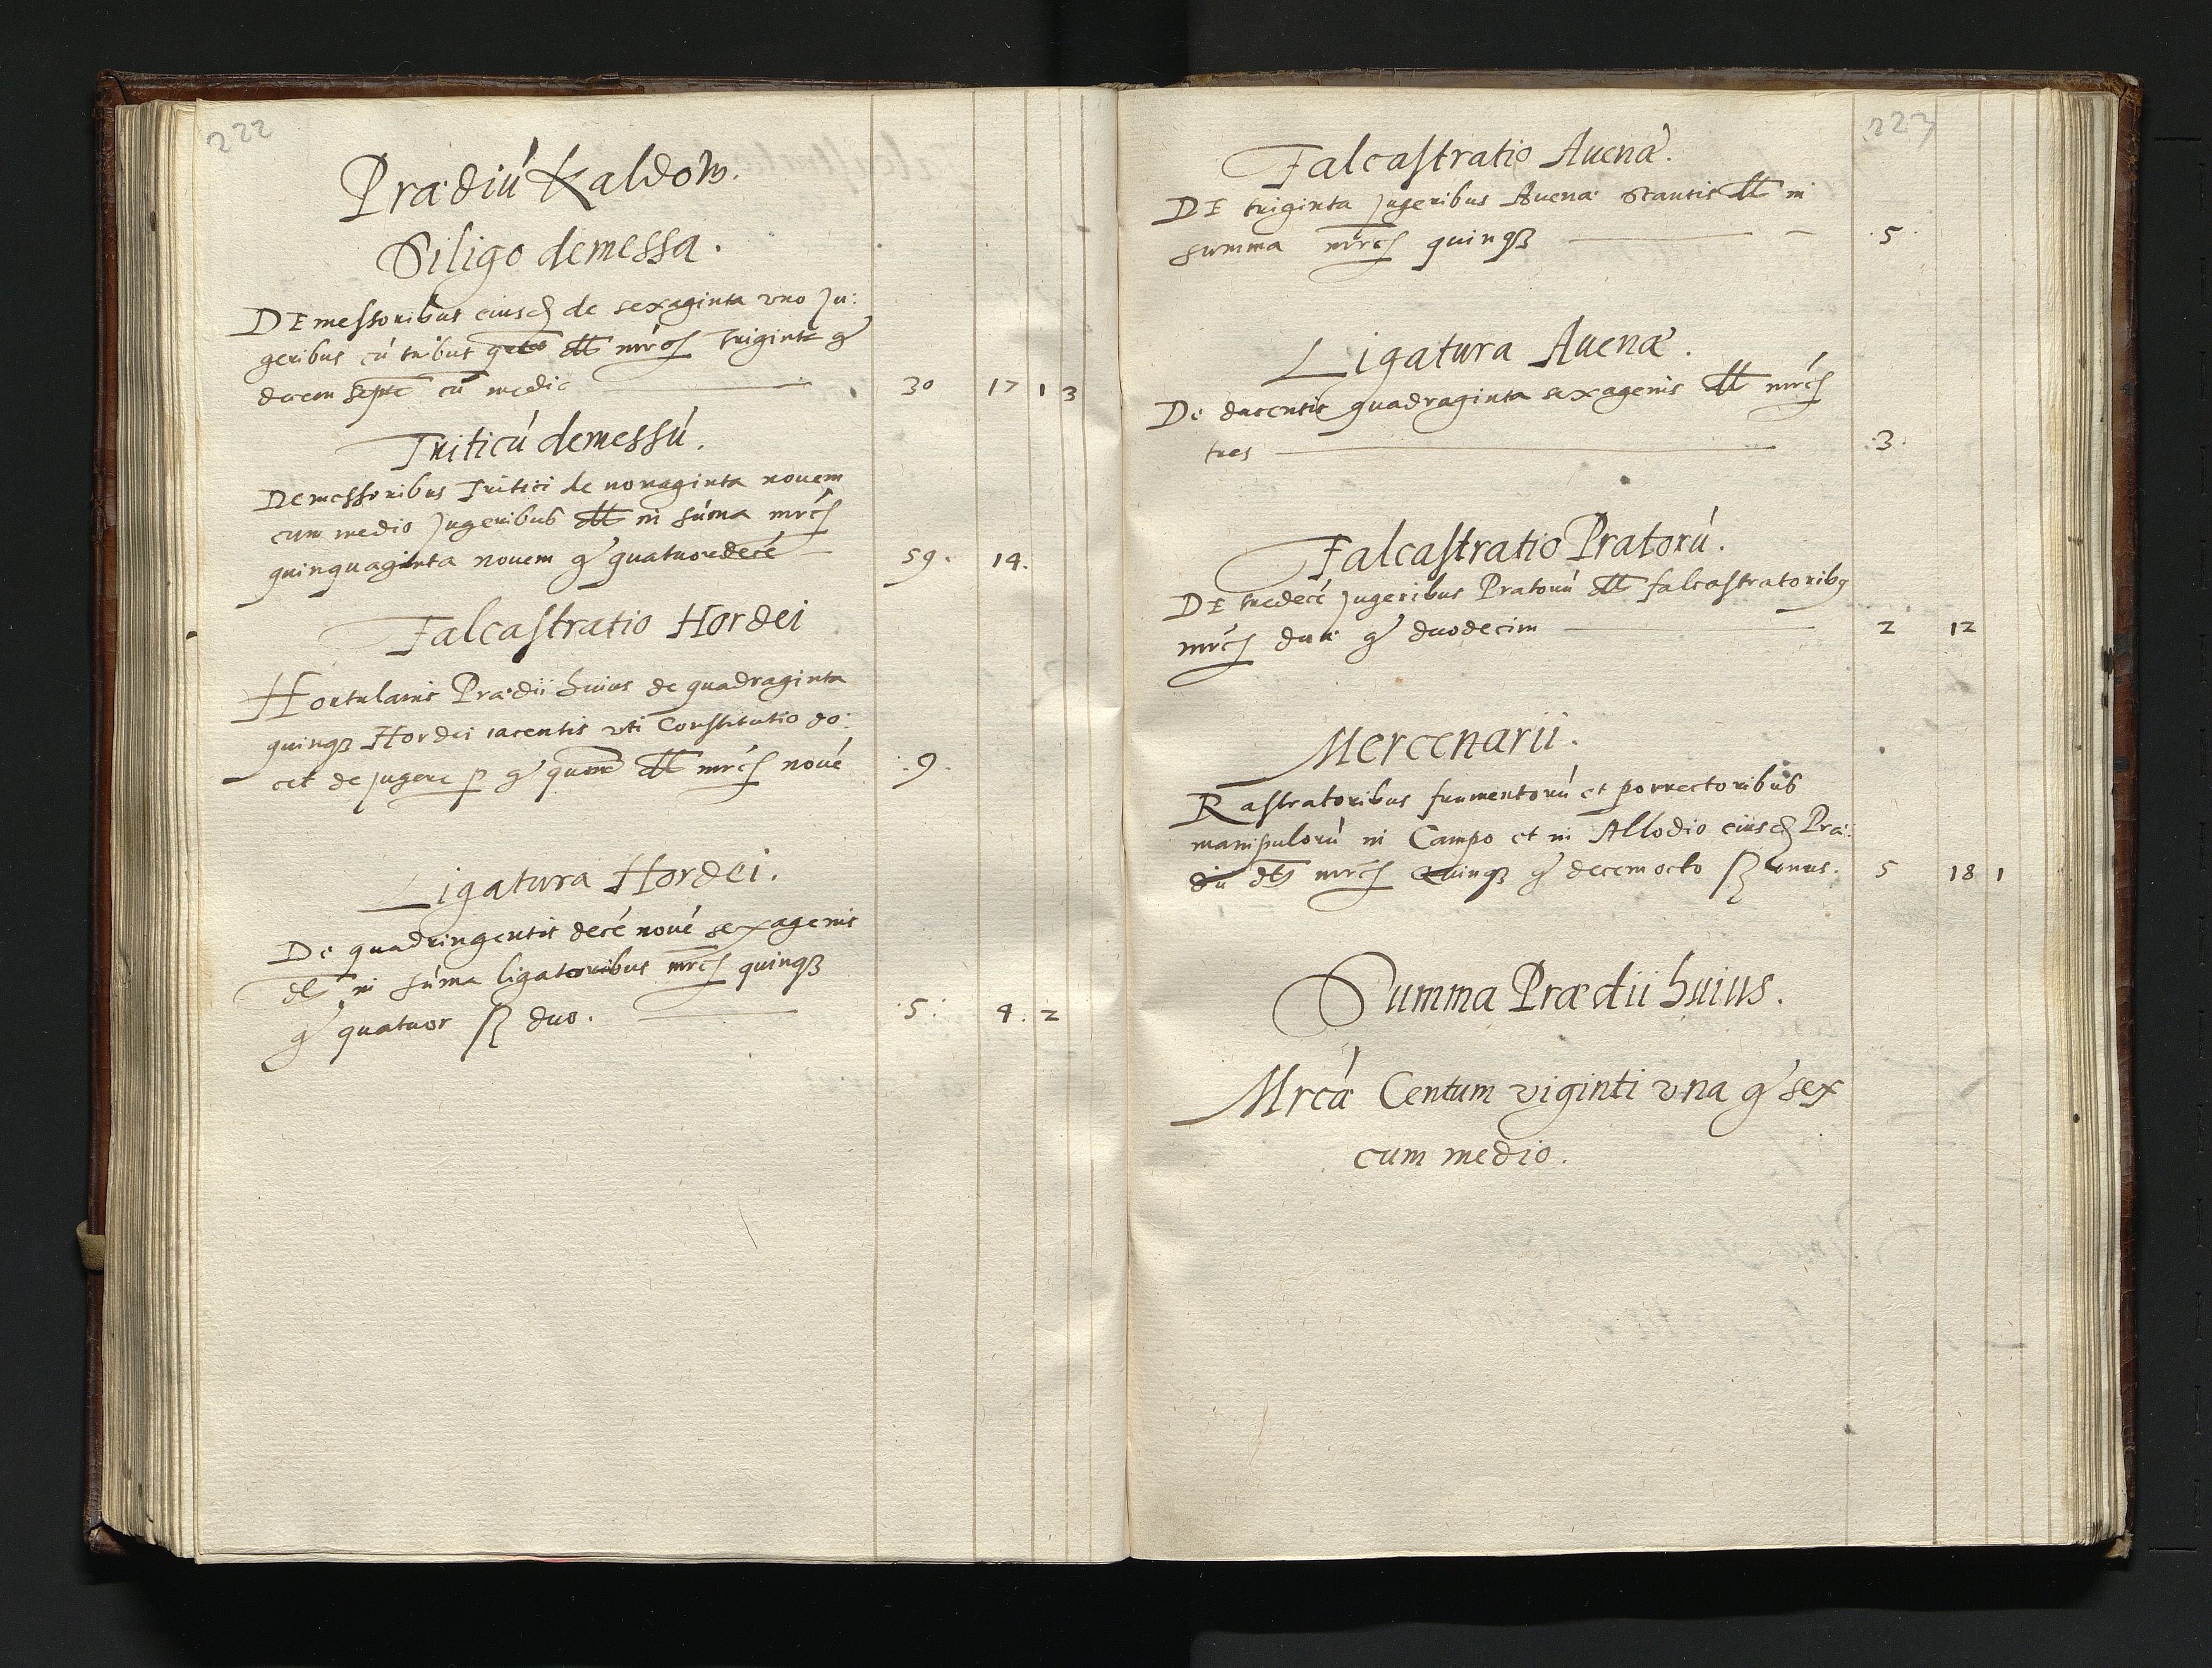 222
Prædiú Kaldow.
Siligo demessa.
DEmessoribus eiusd de sexaginta vno Ju:
geribus cú tribus mrcs Triginta g
decem septe cū medio 30 17 1 3
Triticú demessú.
Demessoribus Tritici de nonaginta nouem
cum medio Jugeribus dtt in súma mrcs
quinquaginta nouem g quatuordecē 59. 14.
Falcastratio Hordei
Hortulanis Prædii huius de quadraginta
quinqȝ Hordei iacentis vti Constitutio do:
cet de jugere p g dtt mrcs noué 9.
Ligatura Hordei.
De quadringentis decé noué sexagenis
dtt in súma ligatoribus mrcs quinqȝ
g quatuor ß duo. 5. 4. 2
223
Falcastratio Auenæ.
DE triginta Jugeribus Auenæ stantis dtt in
summa mrcs quinqȝ 5
Ligatura Auenæ.
De ducentis quadraginta sexagenis dtt mrcs
tres 3
Falcastratio Pratorú.
DE tredecé Jugeribus Pratorú dtt falcastratoribq
mrcs duæ g duodecim 2 12
Mercenarii.
Rastratoribus frumentorú et porrectoribus
manipulorú in Campo et in Allodio eiusd Præ:
dii dtt mrcs Quinqȝ g decem octo ß vnus. 5 18 1
Summa Prædii huius.
Mrcæ Centum viginti vna g sex
cum medio.